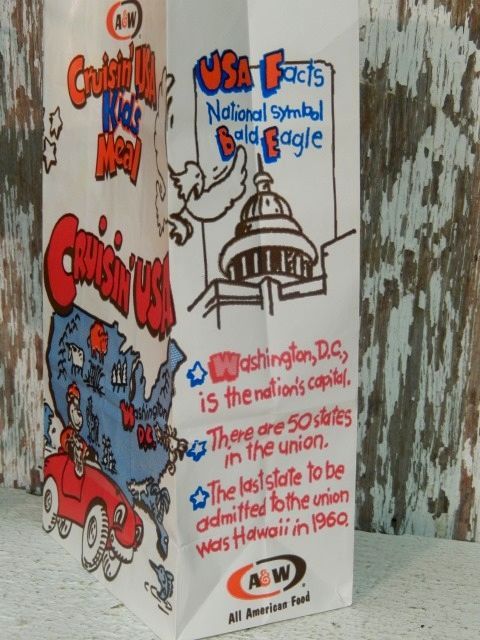 A&W
Cruisin' USA
Kid's
Meal
CRUISIN' USA
Washington
D.C.
USA Facts
National symbol
Bald Eagle
Washington, D.C.,
is the nation's capital.
There are 50 states
in the union.
The last state to be
admitted to the union
was Hawaii in 1960.
A&W
All American Food